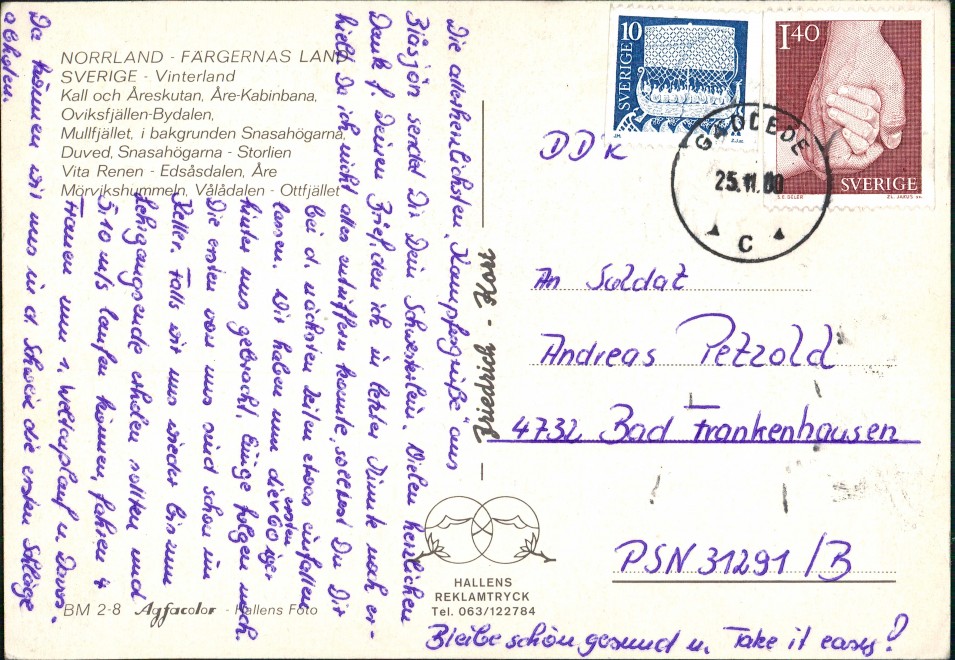 NORRLAND - FÄRGERNAS LAND
SVERIGE - Vinterland
Kall och Åreskutan, Åre-Kabinbana,
Oviksfjällen-Bydalen,
Mullfjället, i bakgrunden Snasahögarna,
Duved, Snasahögarna - Storlien
Vita Renen - Edsåsdalen, Åre
Mörvikshummeln, Vålådalen - Ottfjället
Die allerherzlichsten „Kampfgrüße" aus
Blåsjön sendet Dir Dein Schwesterlein. Vielen herzlichen
Dank f. Deinen Brief, den ich in letzter Minute noch er-
hielt. Da ich nicht alles antreffen konnte, solltest Du Dir
bei d. nächsten Zeilen etwas einfallen
lassen. Wir haben nun die ersten 60iger
hinter uns gebracht. Einige folgen noch.
Die ersten von uns sind schon im
Keller. Falls wir uns wieder bis zum
Lehrgangsende erholen sollten und
5:10 m/s laufen können, fahren 4
Frauen zum 1. Weltcuplauf n. Davos.
Da können wir uns in d. Schweiz die ersten Schläge
abholen.
Friedrich - Rost
SVERIGE 10
1.40
SVERIGE
GÄDDEDE
25.11.80
C
DDR
An Soldat
Andreas Petzold
4732 Bad Frankenhausen
PSN 31291/B
HALLENS
REKLAMTRYCK
Tel. 063/122784
BM 2-8 Agfacolor - Hallens Foto
Bleibe schön gesund u. Take it easy!